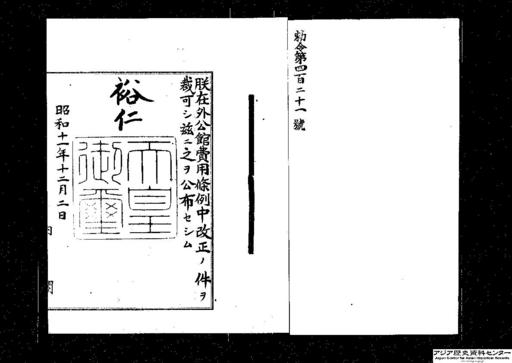 勅令第四百二十一號
朕在外公館費用條例中改正ノ件ヲ
裁可シ茲ニ之ヲ公布セシム
裕仁
天皇
御璽
昭和十一年十二月二日
アジア歴史資料センター
Japan Center for Asian Historical Records